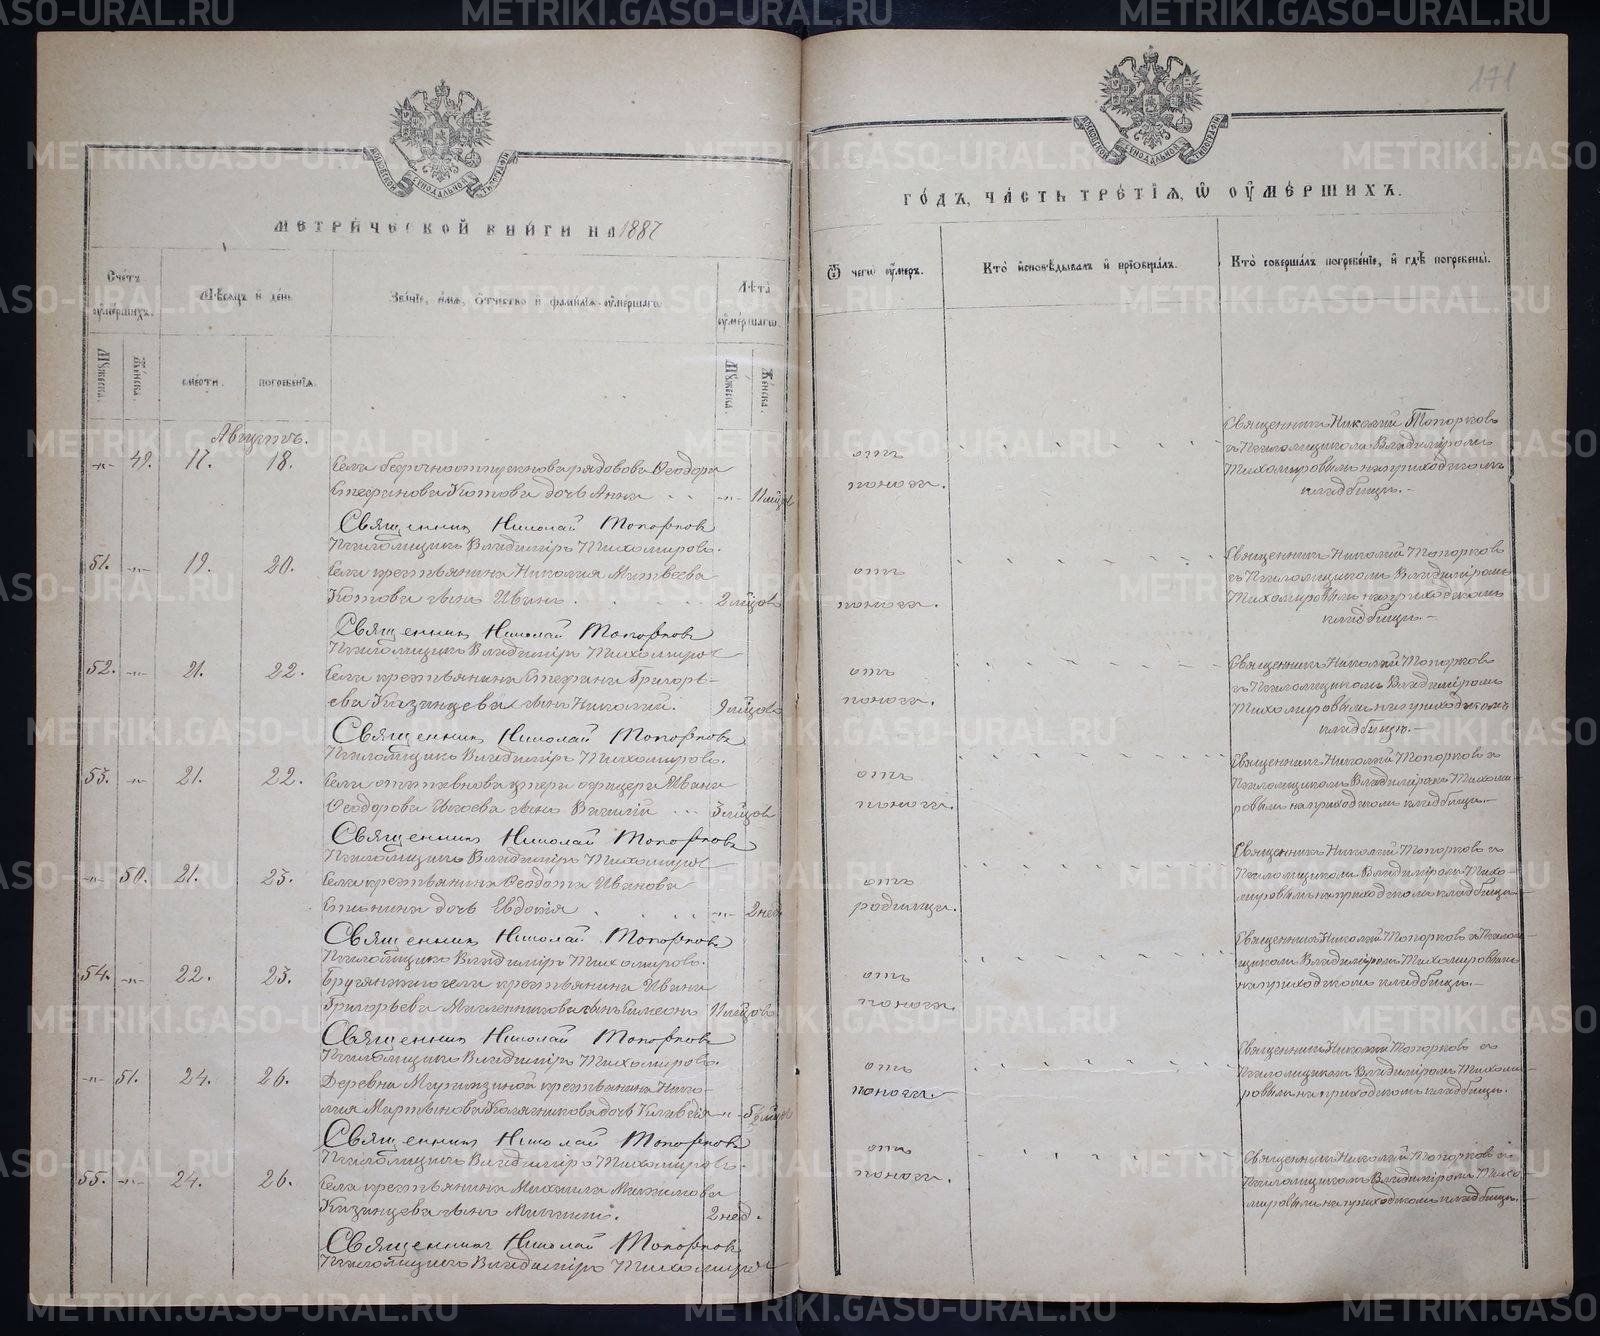 171
МОСКОВСКОЙ СѴНОДАЛЬНОЙ ТИПОГРАФІИ
МОСКОВСКОЙ СѴНОДАЛЬНОЙ ТИПОГРАФІИ
МЕТРИ́ЧЕСКОЙ КНИ́ГИ НА 1887
ГО́ДЪ, ЧА́СТЬ ТРЕ́ТІѦ, Ѡ ОУ҆МЕ́РШИХЪ.
Сче́тъ оу҆ме́ршихъ.
Мѣ́сяцъ и де́нь
Зва́ніе, и҆́мѧ, ѻ҆́тчество и҆ фами́лїѧ оу҆ме́ршагѡ
Лѣ́та оу҆ме́ршагѡ.
Ѿ чегѡ̀ оу҆́меръ.
Кто̀ и҆сповѣ́дывалъ и҆ прїѡбща́лъ.
Кто̀ соверша́лъ погребе́нїе, и҆ гдѣ̀ погребены̀.
Мꙋ́жеска.
Же́нска.
сме́рти.
погребе́нїѧ.
Мꙋ́жеска.
Же́нска.
Августъ.
-„- 49. 17. 18. Села безсрочноотпускнова рядовова Ѳеодора
Стефанова Котова дочь Анна -„- 11 мѣсцов
отъ
поноса.
Священникъ Николай Топорковъ
съ Псаломщикомъ Владиміромъ
Тихомировымъ на приходскомъ
кладбищѣ.-
Священникъ Николай Топорковъ
Псаломщикъ Владиміръ Тихомировъ.
51. -„- 19. 20. Села крестьянина Николая Матвѣева
Котова сынъ Иванъ 2 мѣсцов
отъ
поноса.
Священникъ Николай Топорковъ
съ Псаломщикомъ Владиміромъ
Тихомировымъ на приходскомъ
кладбищѣ.-
Священникъ Николай Топорковъ
Псаломщикъ Владиміръ Тихомировъ
52. -„- 21. 22. Села крестьянина Стефана Григорь-
ева Казанцева сынъ Николай. 9 мѣсцов
отъ
поноса.
Священникъ Николай Топорковъ
съ Псаломщикомъ Владиміромъ
Тихомировымъ на приходскомъ
кладбищѣ.-
Священникъ Николай Топорковъ
Псаломщикъ Владиміръ Тихомировъ.
53. -„- 21. 22. Села отставнова унтеръ офицера Ивана
Ѳеодорова сынъ Василій 3 мѣсцов
отъ
поноса.
Священникъ Николай Топорковъ съ
Псаломщикомъ Владиміромъ Тихоми-
ровымъ на приходскомъ кладбищѣ.-
Священникъ Николай Топорковъ
Псаломщикъ Владиміръ Тихомировъ
-„- 50. 21. 23. Села крестьянина Ѳеодота Иванова
дочь Евдокія -„- 2 нед.
отъ
родимца.
Священникъ Николай Топорковъ съ
Псаломщикомъ Владиміромъ Тихо-
мировымъ на приходскомъ кладбищѣ.-
Священникъ Николай Топорковъ
Псаломщикъ Владиміръ Тихомировъ.
54. -„- 22. 23. села крестьянина Ивана
Григорьева Масленникова сынъ Симеонъ 11 мѣсцов
отъ
поноса.
Священникъ Николай Топорковъ съ Псалом-
щикомъ Владиміромъ Тихомировымъ
на приходскомъ кладбищѣ.-
Священникъ Николай Топорковъ
Псаломщикъ Владиміръ Тихомировъ.
-„- 51. 24. 26. Деревни крестьянина Нико-
лая Мартынова дочь Клавдія -„- 5½ мѣсцов
отъ
поноса.-
Священникъ Николай Топорковъ съ
Псаломщикомъ Владиміромъ Тихоми-
ровымъ на приходскомъ кладбищѣ.
Священникъ Николай Топорковъ
Псаломщикъ Владиміръ Тихомировъ.
55. -„- 24. 26. Села крестьянина Михаила Максимова
Казанцева сынъ 2 нед.
отъ
поноса.
Священникъ Николай Топорковъ съ
Псаломщикомъ Владиміромъ Тихо-
мировымъ на приходскомъ кладбищѣ.-
Священникъ Николай Топорковъ
Псаломщикъ Владиміръ Тихомировъ
METRIKI.GASO-URAL.RU